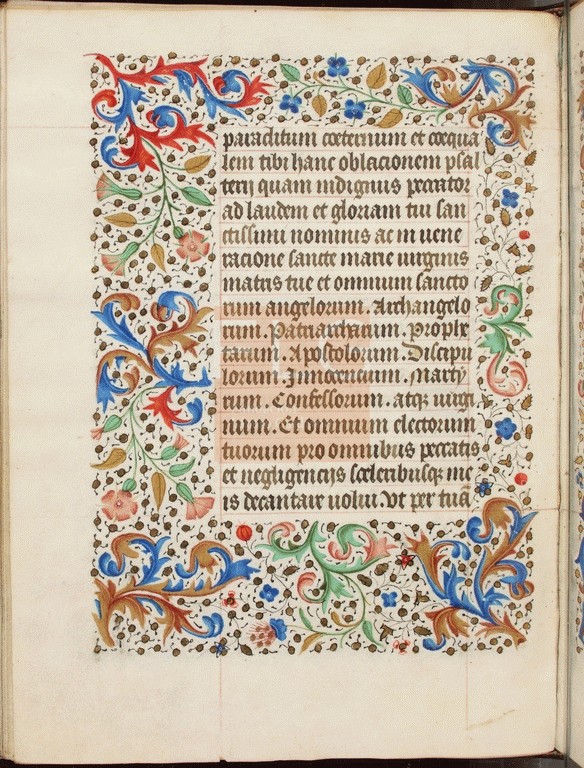 paraclitum coeternum et coequa
lem tibi hanc oblacionem psal
terij quam indignus peccator
ad laudem et gloriam tui san
ctissimi nominis ac in uene
racione sancte marie uirginis
matris tue et omnium sancto
rum angelorum. Archangelo
rum. Patriarcharum. Prophe
tarum. Apostolorum. Discipu
lorum. Innocencium. Marty
rum. Confessorum. atqꝫ uirgi
num. Et omnium electorum
tuorum pro omnibus peccatis
et negligencijs sceleribusqꝫ me
is decantare uolui. Vt per tuā